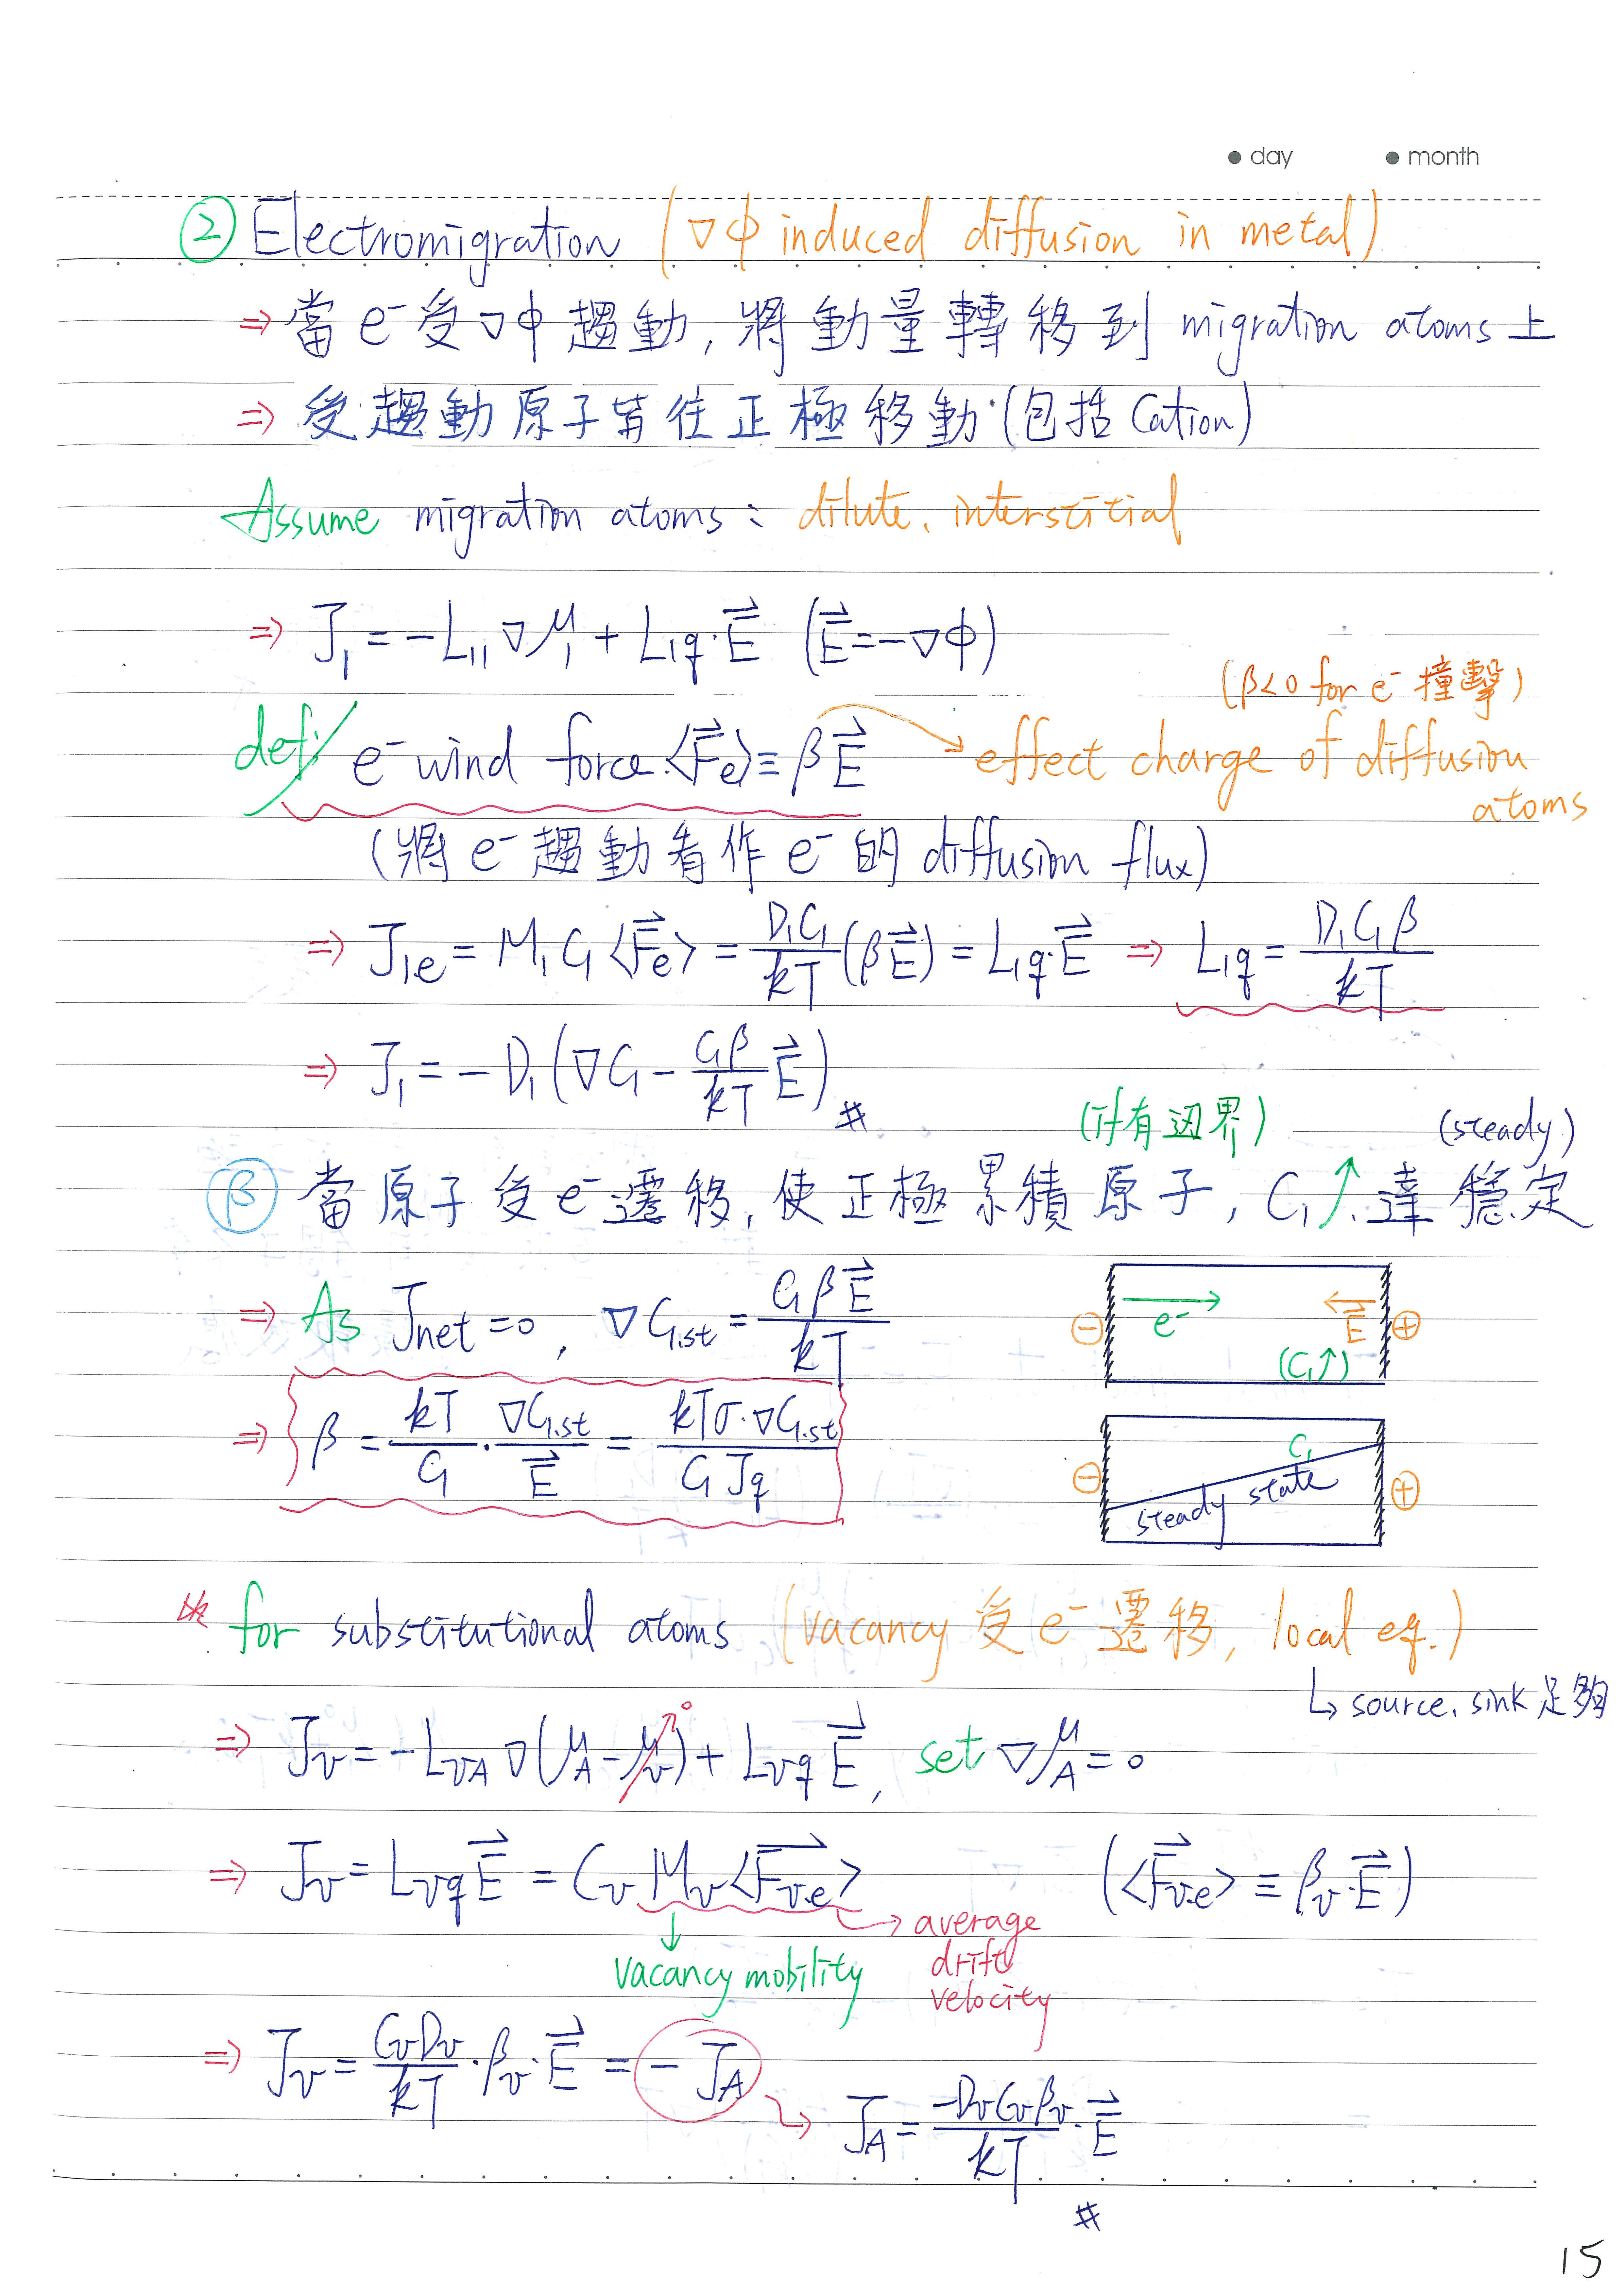 ● day ● month
② Electromigration (∇φ induced diffusion in metal)
⇒ 當 e⁻ 受 ∇φ 趨動, 將動量轉移到 migration atoms 上
⇒ 受趨動原子皆往正極移動 (包括 Cation)
Assume migration atoms: dilute、interstitial
⇒ J₁ = -L₁₁∇μ₁ + L₁q·E⃗ (E⃗ = -∇φ)
(β<0 for e⁻ 撞擊)
def: e⁻ wind force <F⃗e> ≡ βE⃗ → effect charge of diffusion
atoms
(將 e⁻ 趨動看作 e⁻ 的 diffusion flux)
⇒ J₁e = M₁C₁<F⃗e> = D₁C₁/kT (βE⃗) = L₁q·E⃗ ⇒ L₁q = D₁C₁β/kT
⇒ J₁ = -D₁(∇C₁ - C₁β/kT E⃗) #
(才有边界) (steady)
Ⓑ 當原子受 e⁻ 遷移, 使正極累積原子, C₁↑、達穩定
⇒ As Jnet = 0, ∇C₁.st = C₁βE⃗/kT
⊖ e⁻ E⃗ ⊕
(C₁↑)
⇒ β = kT/C₁ · ∇C₁.st/E⃗ = kTσ·∇C₁.st/C₁Jq
⊖ C₁ ⊕
steady state
※ for substitutional atoms (vacancy 受 e⁻ 遷移, local eq.)
↳ source、sink 足夠
⇒ Jv = -LvA∇(μA - μv)⁰ + LvqE⃗, set ∇μA = 0
⇒ Jv = LvqE⃗ = CvMv<F⃗v.e> (<F⃗v.e> ≡ βv·E⃗)
↓ vacancy mobility → average
drift
velocity
⇒ Jv = CvDv/kT · βv·E⃗ = -JA
↳ JA = -DvCvβv/kT · E⃗
#
15